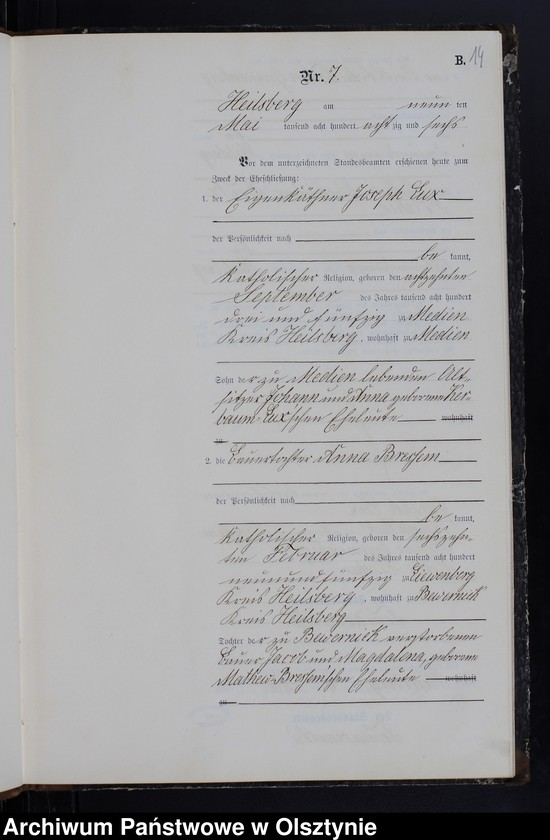 B. 14
Nr. 7.
Heilsberg am neun ten
Mai tausend acht hundert acht zig und sechs
Vor dem unterzeichneten Standesbeamten erschienen heute zum
Zweck der Eheschließung:
1. der Eigenkäthner Joseph Lux
der Persönlichkeit nach
be kannt,
katholischer Religion, geboren den achtzehnten
September des Jahres tausend acht hundert
drei und fünfzig zu Medien
Kreis Heilsberg, wohnhaft zu Medien
Sohn der zu Medien lebenden Alt-
sitzer Johann und Anna geborene
baum-Lux'schen Eheleute wohnhaft
zu
2. die Bauertochter Anna
der Persönlichkeit nach
be kannt,
katholischer Religion, geboren den sechszehn-
ten Februar des Jahres tausend acht hundert
neunundfünfzig zu Liewenberg
Kreis Heilsberg, wohnhaft zu Bewernick
Kreis Heilsberg
Tochter der zu Bewernick verstorbenen
Bauer Jacob und Magdalena, geborene
Eheleute wohnhaft
zu
Archiwum Państwowe w Olsztynie